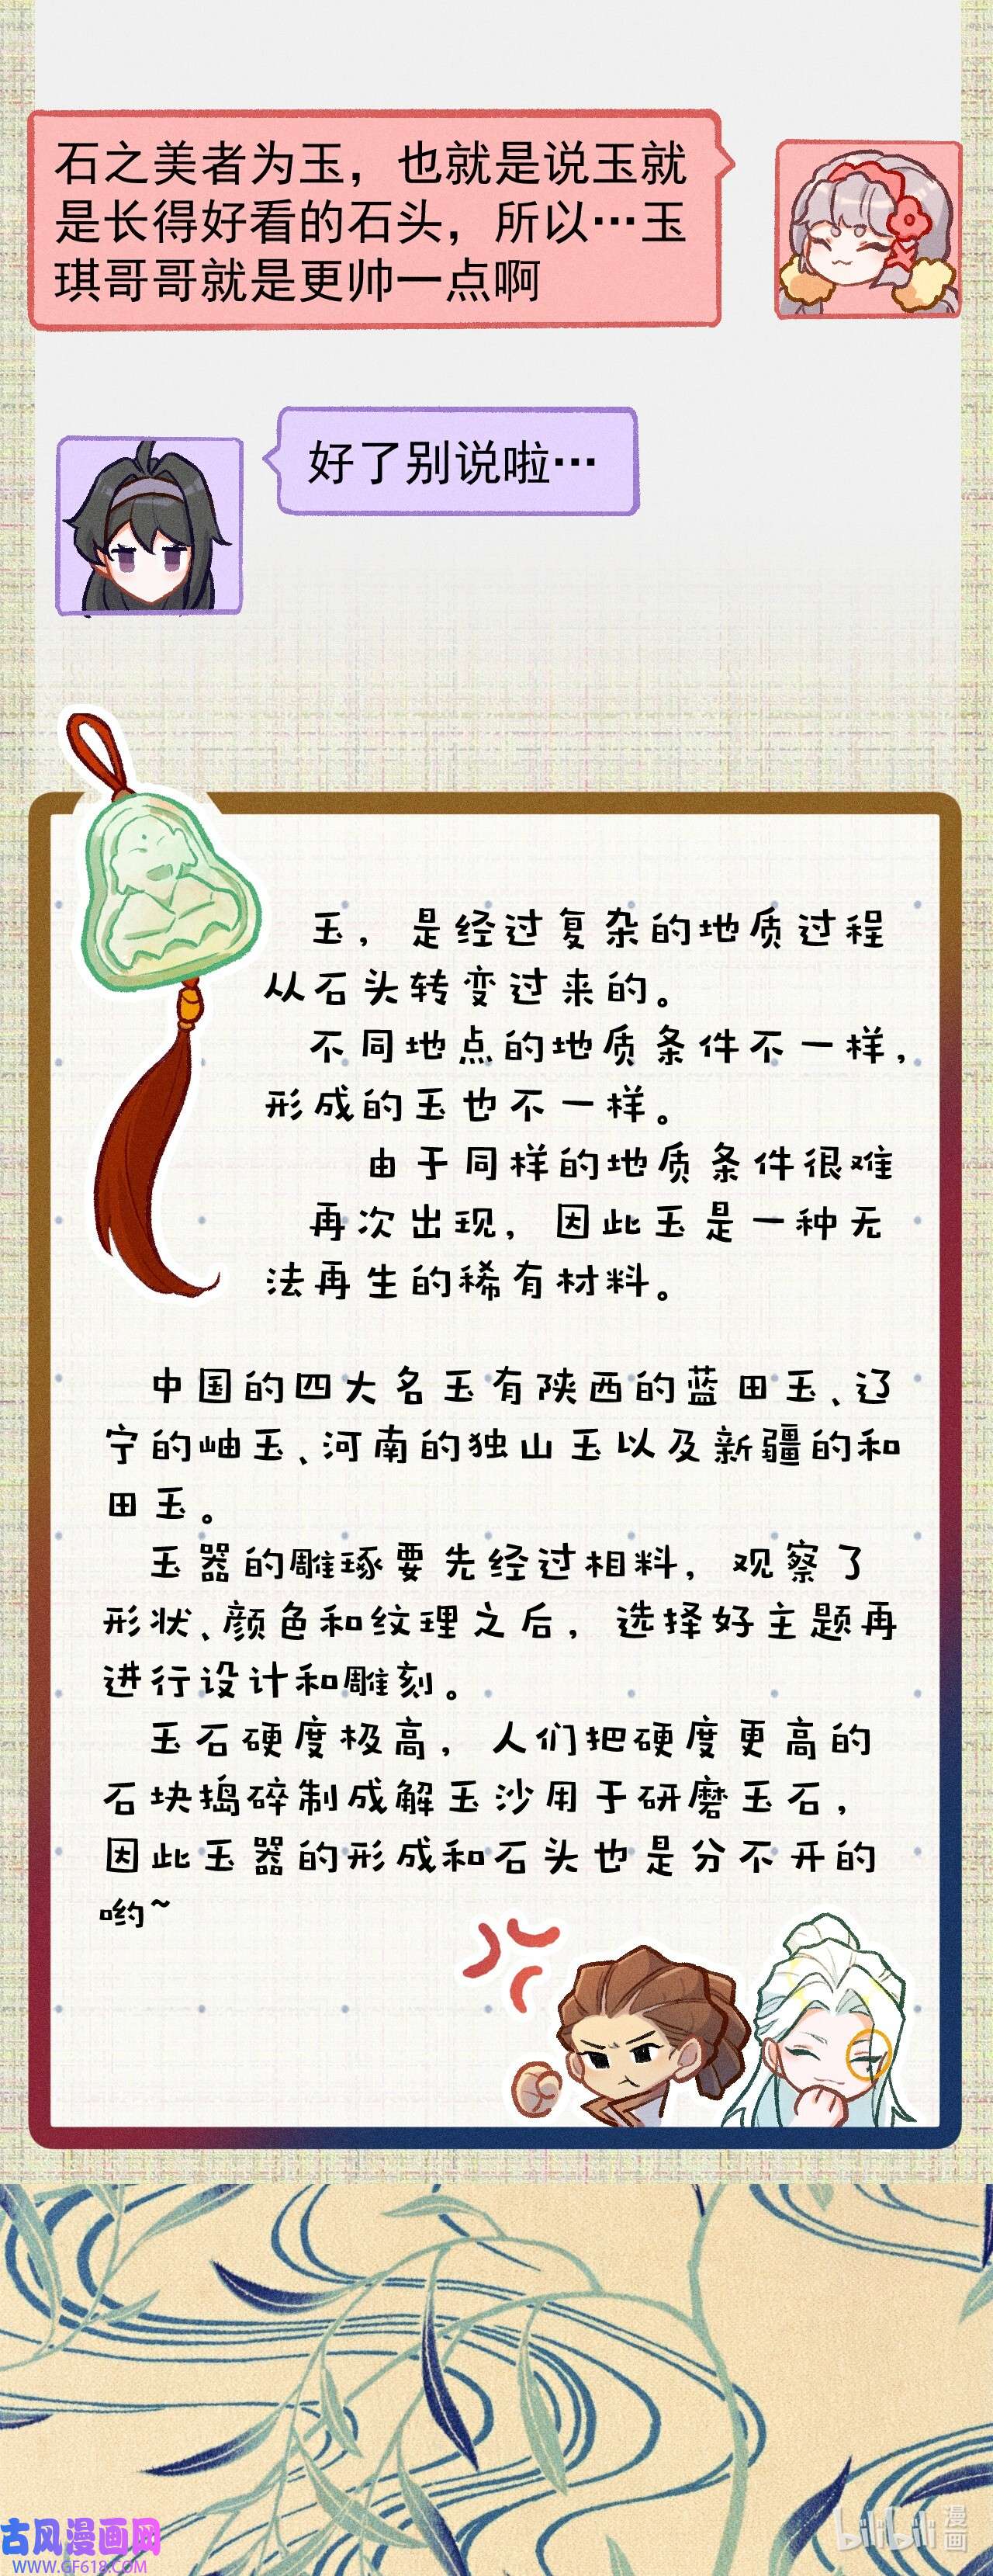 石之美者为玉，也就是说玉就
是长得好看的石头，所以…玉
琪哥哥就是更帅一点啊
好了别说啦…
玉，是经过复杂的地质过程
从石头转变过来的。
不同地点的地质条件不一样，
形成的玉也不一样。
由于同样的地质条件很难
再次出现，因此玉是一种无
法再生的稀有材料。
中国的四大名玉有陕西的蓝田玉、辽
宁的岫玉、河南的独山玉以及新疆的和
田玉。
玉器的雕琢要先经过相料，观察了
形状、颜色和纹理之后，选择好主题再
进行设计和雕刻。
玉石硬度极高，人们把硬度更高的
石块捣碎制成解玉沙用于研磨玉石，
因此玉器的形成和石头也是分不开的
哟~
古风漫画网
WWW.GF618.COM
bilibili 漫画